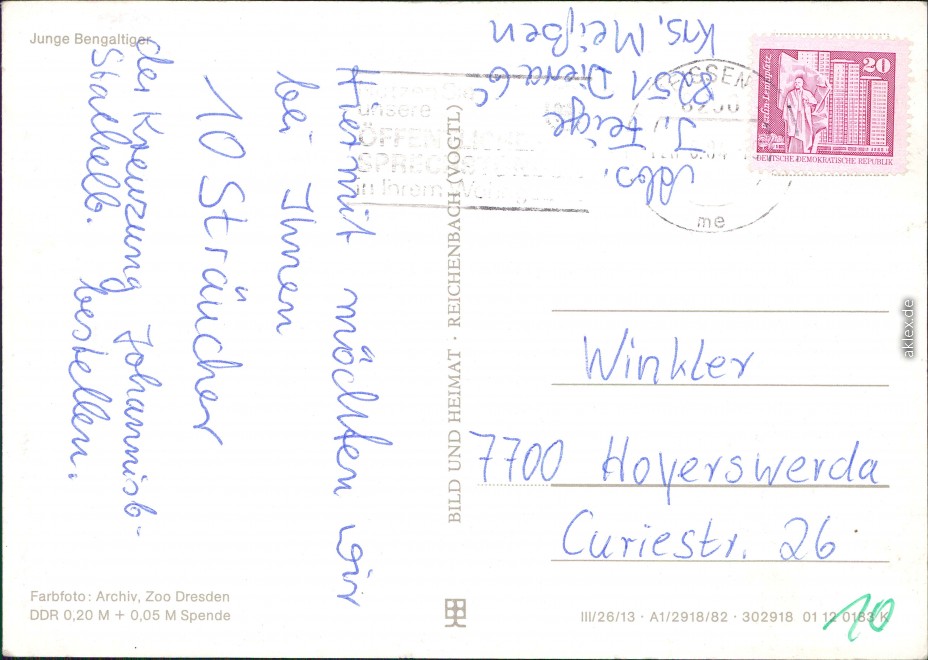 Junge Bengaltiger
Hiermit möchten wir
bei Ihnen
10 Sträucher
der Kreuzung Johannisb-
Stachelb. bestellen.
Abs.
J. Feige
8251 Diera 6
Krs. Meißen
20
DEUTSCHE DEMOKRATISCHE REPUBLIK
unsere
in Ihrem
me
BILD UND HEIMAT · REICHENBACH (VOGTL)
Winkler
7700 Hoyerswerda
Curiestr. 26
Farbfoto: Archiv, Zoo Dresden
DDR 0,20 M + 0,05 M Spende
III/26/13 · A1/2918/82 · 302918 01 12 0183 K
10
aklex.de